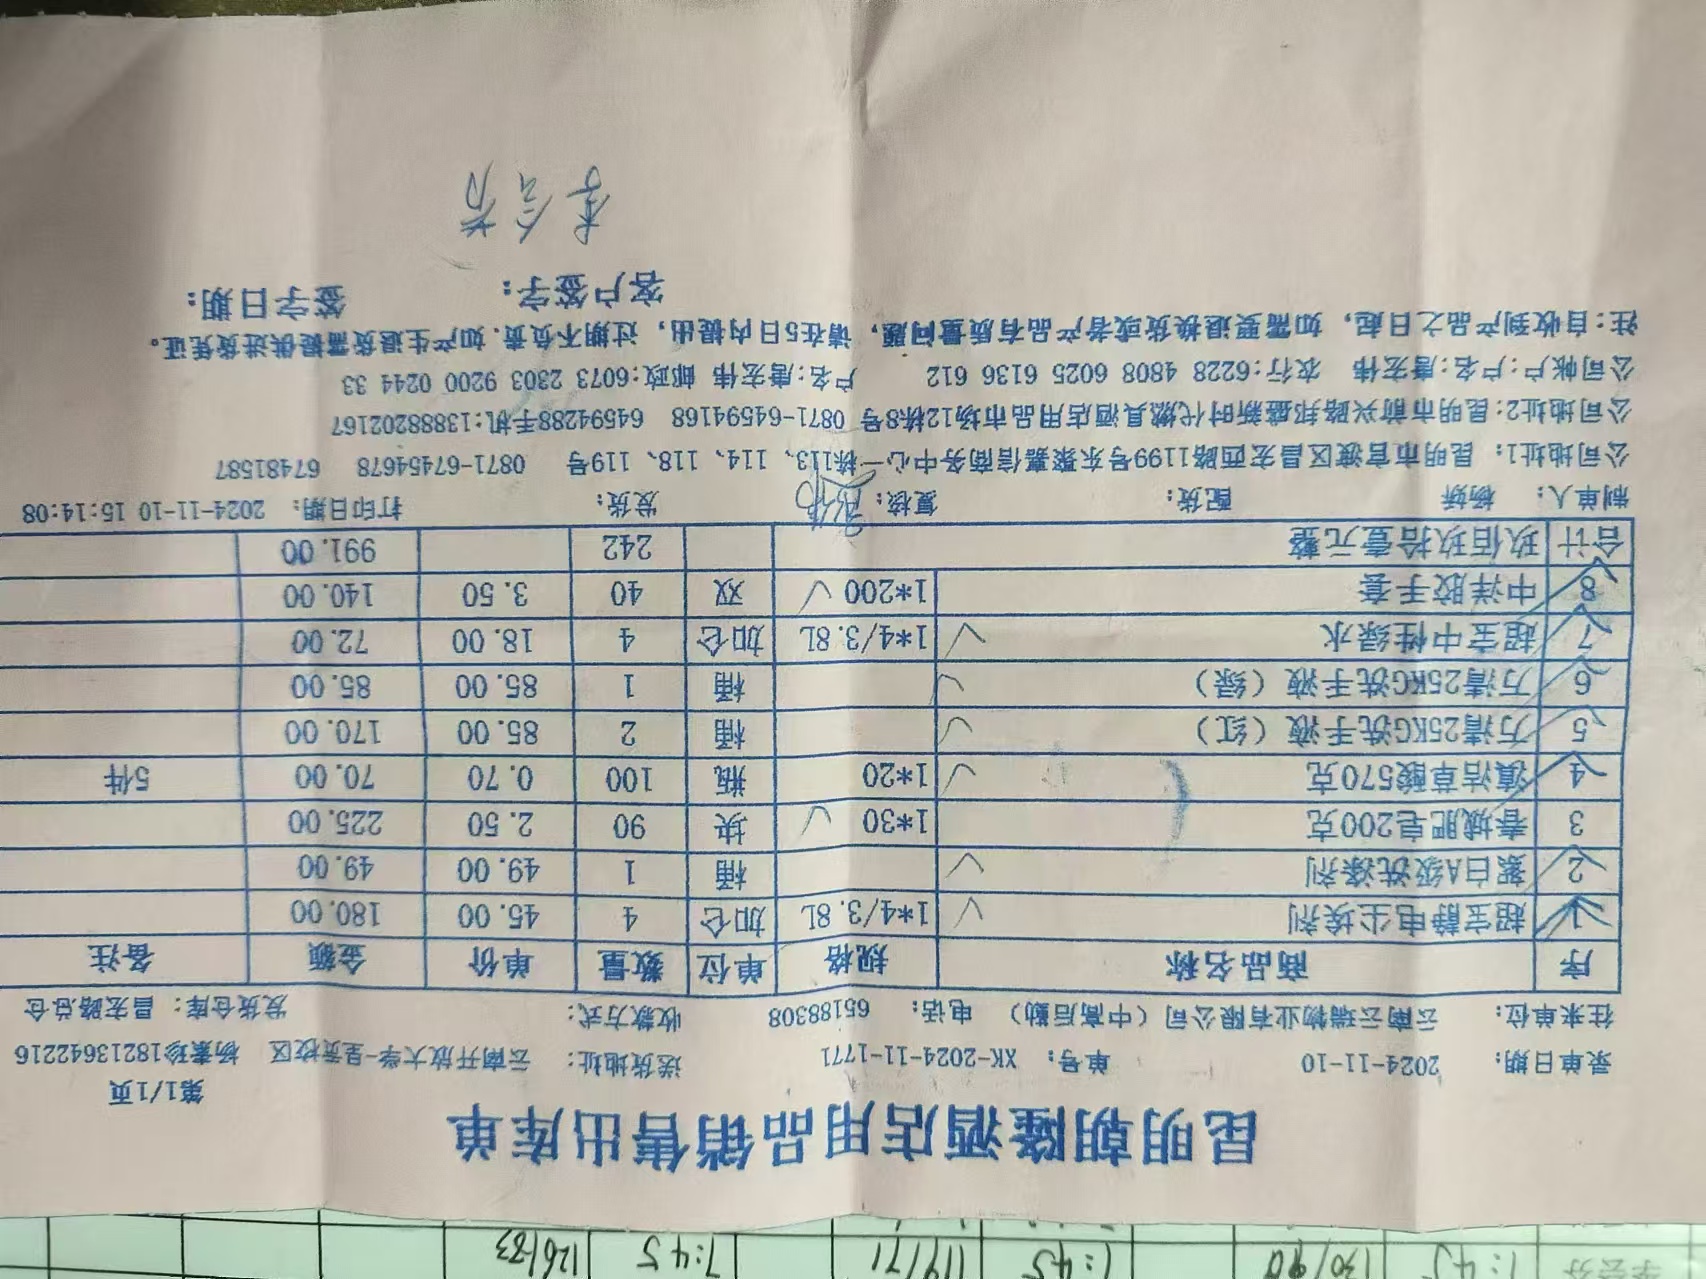 昆明朝隆酒店用品销售出库单
第1/1页
录单日期: 2024-11-10 单号: XK-2024-11-11-1771 送货地址: 云南开放大学-呈贡校区 杨素珍18213642216
往来单位: 云南云瑞物业有限公司(中高后勤) 电话: 65188308 收款方式: 发货仓库: 昌宏路总仓
序 商品名称 规格 单位 数量 单价 金额 备注
1 超宝静电尘埃剂 1*4/3.8L 加仑 4 45.00 180.00
2 絮白A级洗涤剂 桶 1 49.00 49.00
3 春城肥皂200克 1*30 块 90 2.50 225.00
4 滇洁草酸570克 1*20 瓶 100 0.70 70.00 5件
5 万清25KG洗手液(红) 桶 2 85.00 170.00
6 万清25KG洗手液(绿) 桶 1 85.00 85.00
7 超宝中性绿水 1*4/3.8L 加仑 4 18.00 72.00
8 中洋胶手套 1*200 双 40 3.50 140.00
合计 玖佰玖拾壹元整 242 991.00
制单人: 杨娇 配货: 复核: 发货: 打印日期: 2024-11-10 15:14:08
公司地址1: 昆明市官渡区昌宏西路1199号东聚嘉信商务中心一栋113、114、118、119号 0871-67454678 67481587
公司地址2:昆明市前兴路邦盛新时代燃具酒店用品市场12栋8号 0871-64594168 64594288手机:13888202167
公司帐户:户名:唐宏伟 农行:6228 4808 6025 6136 612 户名:唐宏伟 邮政:6073 2303 9200 0244 33
注:自收到产品之日起,如需要退换货或者产品有质量问题,请在5日内提出,过期不负责.如产生退货需提供进货凭证。
客户签字: 签字日期:
李会芳
1:45 130/90 1:45 119/71 7:45 126/83